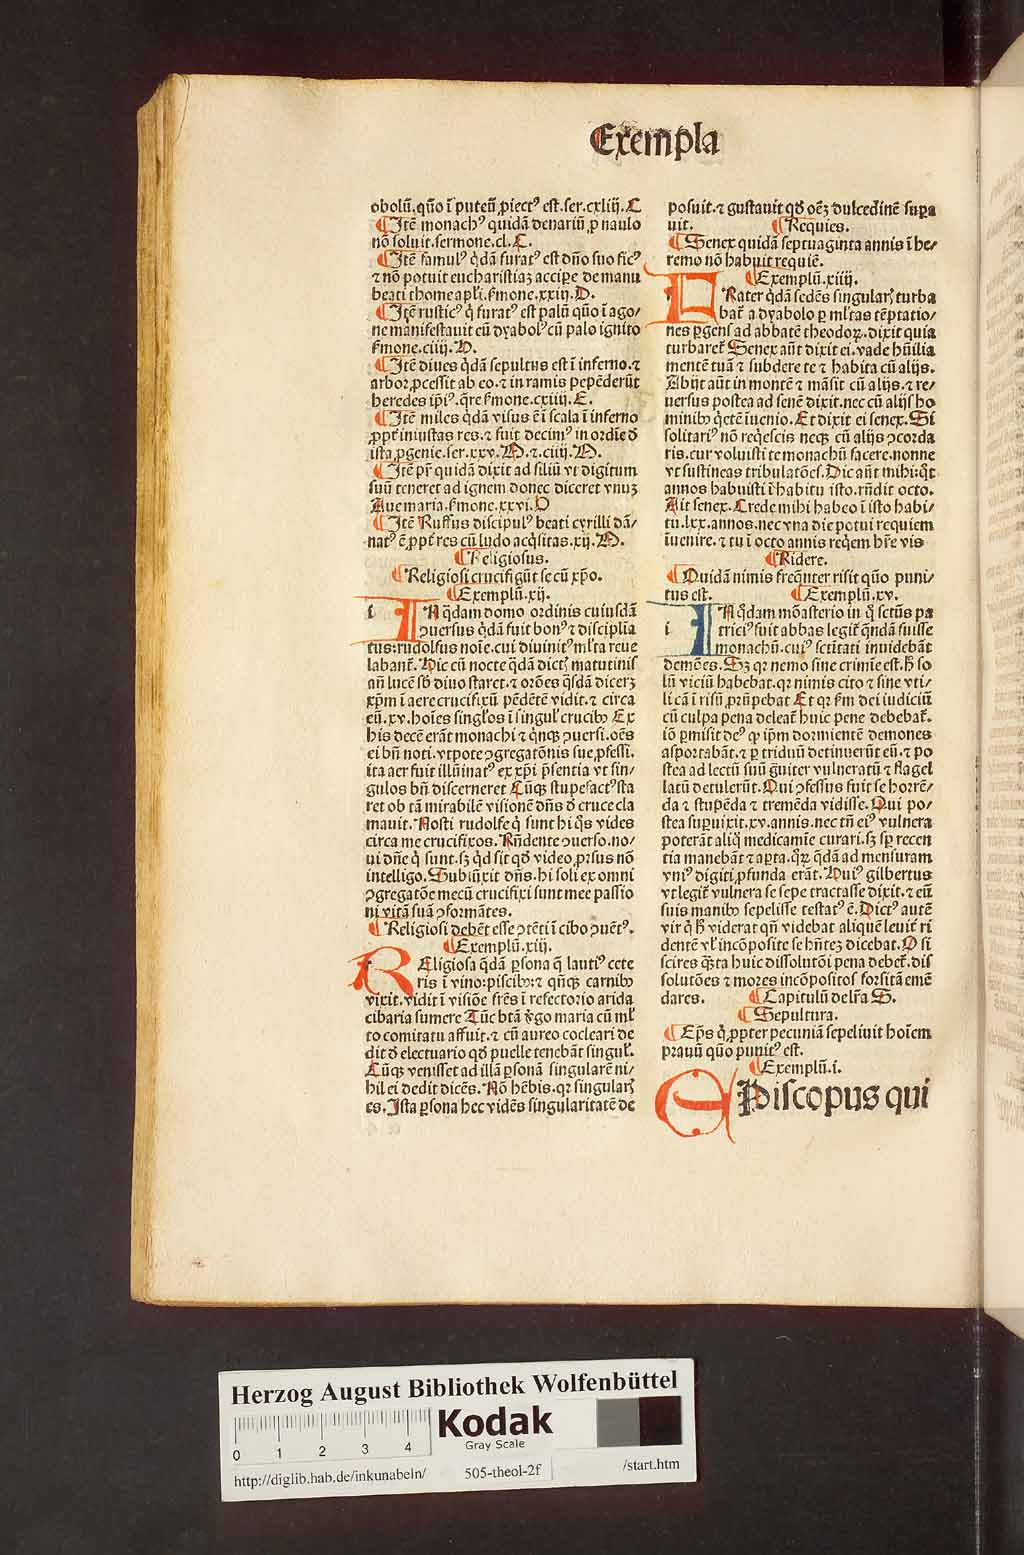 Exempla
obolū. quō ī puteū ꝓiectꝰ est. ser. cxliij. C
¶ Itē monachꝰ quidā denariū ꝓ naulo
nō soluit. sermone. cl. C.
¶ Itē famulꝰ q̇dā furatꝰ est dn̄o suo ficꝰ
⁊ nō potuit eucharistiaꝫ accipe̱ de manu
beati thome apl̓i. ẜmone. xxiij. D.
¶ Itē rusticꝰ q̇ furatꝰ est palū quō ī ago⸗
ne manifestauit eū dyabolꝰ cū palo ignito
ẜmone. ciiij.
¶ Itē diues q̇dā sepultus est ī inferno. ⁊
arbor ꝓcessit ab eo. ⁊ in ramis pepēderūt
heredes ip̄iꝰ. q̄re ẜmone. cxiiij. E.
¶ Itē miles q̇dā visus ē ī scala ī inferno
ꝓpt̓ iniustas res. ⁊ fuit decimꝰ in ordīe đ
ista ꝓgenie. ser. xxv. M. ⁊ ciiij. M.
¶ Itē pr̄ quidā dixit ad filiū vt digitum
suū teneret ad ignem donec diceret vnuꝫ
Aue maria. ẜmone. xxvi. O
¶ Itē Ruffus discipulꝰ beati cyrilli dā⸗
natꝰ ē ꝓpt̓ res cū ludo acq̇sitas. xij. M.
¶ Religiosus.
¶ Religiosi crucifigūt se cū xp̄o.
¶ Exemplū. xij.
i IN q̇dam domo ordinis cuiusdā
ↄuersus q̇dā fuit bonꝰ ⁊ disciplia
tus: rudolfus noīe. cui diuinitꝰ ml̓ta reue
labant̓. Hic cū nocte q̇dā dict̓ matutinis
an̄ lucē sb̄ diuo staret. ⁊ orōes q̇sdā dicerꝫ
xp̄m ī aere crucifixū pēdētē vidit. ⁊ circa
eū. xv. hoīes singl̓os ī singul̓ crucibꝰ Ex
his decē erāt monachi ⁊ q̇nqꝫ ↄuersi. oēs
ei bn̄ noti. vtpote ↄgregatōnis sue ꝓfessi.
ita aer fuit illūinatꝰ ex xp̄i p̄sentia vt sin⸗
gulos bn̄ discerneret Cūqꝫ stupefactꝰ sta
ret ob tā mirabilē visionē dn̄s đ cruce cla
mauit. Nosti rudolfe q̇ sunt hi q̇s vides
circa me crucifixos. Rn̄dente ↄuerso. no⸗
ui dn̄e q̇ sunt. sꝫ q̇d sit qđ video ꝓrsus nō
intelligo. Subiūxit dn̄s. hi soli ex omni
ↄgregatōe mecū crucifixi sunt mee passio
ni vitā suā ↄformātes.
¶ Religiosi debēt esse ↄtēti ī cibo ↄuētꝰ.
¶ Exemplū. xiij.
REligiosa q̇dā ꝑsona q̄ lautiꝰ cete
ris ī vino: piscibꝰ: ⁊ qn̄qꝫ carnibꝰ
vixit. vidit ī visiōe frēs ī refectorio arida
cibaria sumere Tūc btā v̓go maria cū ml̓
to comitatu affuit. ⁊ cū aureo cocleari de
dit đ electuario qđ puelle tenebāt singul̓.
Cūqꝫ venisset ad illā ꝑsonā singularē ni⸗
hil ei dedit dicēs. Nō hēbis. qꝛ singular̓
es. Ista ꝑsona hec vidēs singularitatē de
posuit. ⁊ gustauit qđ oēꝫ dulcedinē suꝑa
uit. ¶ Requies.
¶ Senex quidā septuaginta annis ī he⸗
remo nō habuit requiē.
¶ Exemplū. xiiij.
FRater q̇dā sedēs singular̓ turba
bat̓ a dyabolo ꝑ ml̓tas tēptatio⸗
nes ꝑgens ad abbatē theodoꝝ. dixit quia
turbaret̓ Senex aūt dixit ei. vade hūilia
mentē tuā ⁊ subdere te ⁊ habita cū alijs.
Abijt aūt in montē ⁊ māsit cū alijs. ⁊ re⸗
uersus postea ad senē dixit. nec cū alijs ho
minibꝰ q̇etē īuenio. Et dixit ei senex. Si
solitariꝰ nō req̇escis neqꝫ cū alijs ↄcorda
ris. cur voluisti te monachū facere. nonne
vt sustineas tribulatōes. Dic aūt mihi: q̇t
annos habuisti ī habitu isto. rn̄dit octo.
Ait senex. Crede mihi habeo ī isto habi⸗
tu. lxx. annos. nec vna die potui requiem
īuenire. ⁊ tu ī octo annis reqēm hr̄e vis
¶ Ridere.
¶ Quidā nimis freq̄nter risit quō puni⸗
tus est. ¶ Exemplū. xv.
i IN q̇dam mōasterio in q̇ sctūs pa
triciꝰ fuit abbas legit̓ qn̄dā fuisse
monachū. cuiꝰ sctītati inuidebāt
demōes. Sꝫ qꝛ nemo sine crimīe est. h̄ so
lū viciū habebat. qꝛ nimis cito ⁊ sine vti⸗
li cā ī risū ꝓrūpebat Et qꝛ ẜm dei iudiciū
cū culpa pena deleat̓ huic pene debebat̓.
iō ꝑmisit deꝰ ꝙ ip̄m dormientē demones
asportabāt. ⁊ ꝑ triduū detinuerūt eū. ⁊ po
stea ad lectū suū gr̄uiter vulneratū ⁊ flagel
latū detulerūt. Qui ↄfessus fuit se horrē⸗
da ⁊ stupēda ⁊ tremēda vidisse. Qui po⸗
stea suꝑuixit. xv. annis. nec tn̄ eiꝰ vulnera
poterāt aliq̇ medicamīe curari. sꝫ sp̄ recen
tia manebāt ⁊ aꝑta. qꝝ q̇dā ad mensuram
vniꝰ digiti ꝓfunda erāt. Huiꝰ gilbertus
vt legit̓ vulnera se sepe tractasse dixit. ⁊ eū
suis manibꝰ sepelisse testatꝰ ē. Dictꝰ autē
vir q̇ h̄ viderat qn̄ videbat aliquē leuit̓ ri
dentē vl̓ incōposite se hn̄teꝫ dicebat. O si
scires q̄sta huic dissolutōi pena debet̓. dis
solutōes ⁊ mores incōpositos forsitā emē
dares. ¶ Capitulū del̓ra S.
¶ Sepultura.
¶ Ep̄s q̇ ꝓpter pecuniā sepeliuit hoīem
prauū quō punitꝰ est.
¶ Exemplū. i.
EPiscopus qui
Herzog August Bibliothek Wolfenbüttel
0 1 2 3 4
Kodak
Gray Scale
http://diglib.hab.de/inkunabeln/ 505-theol-2f /start.htm